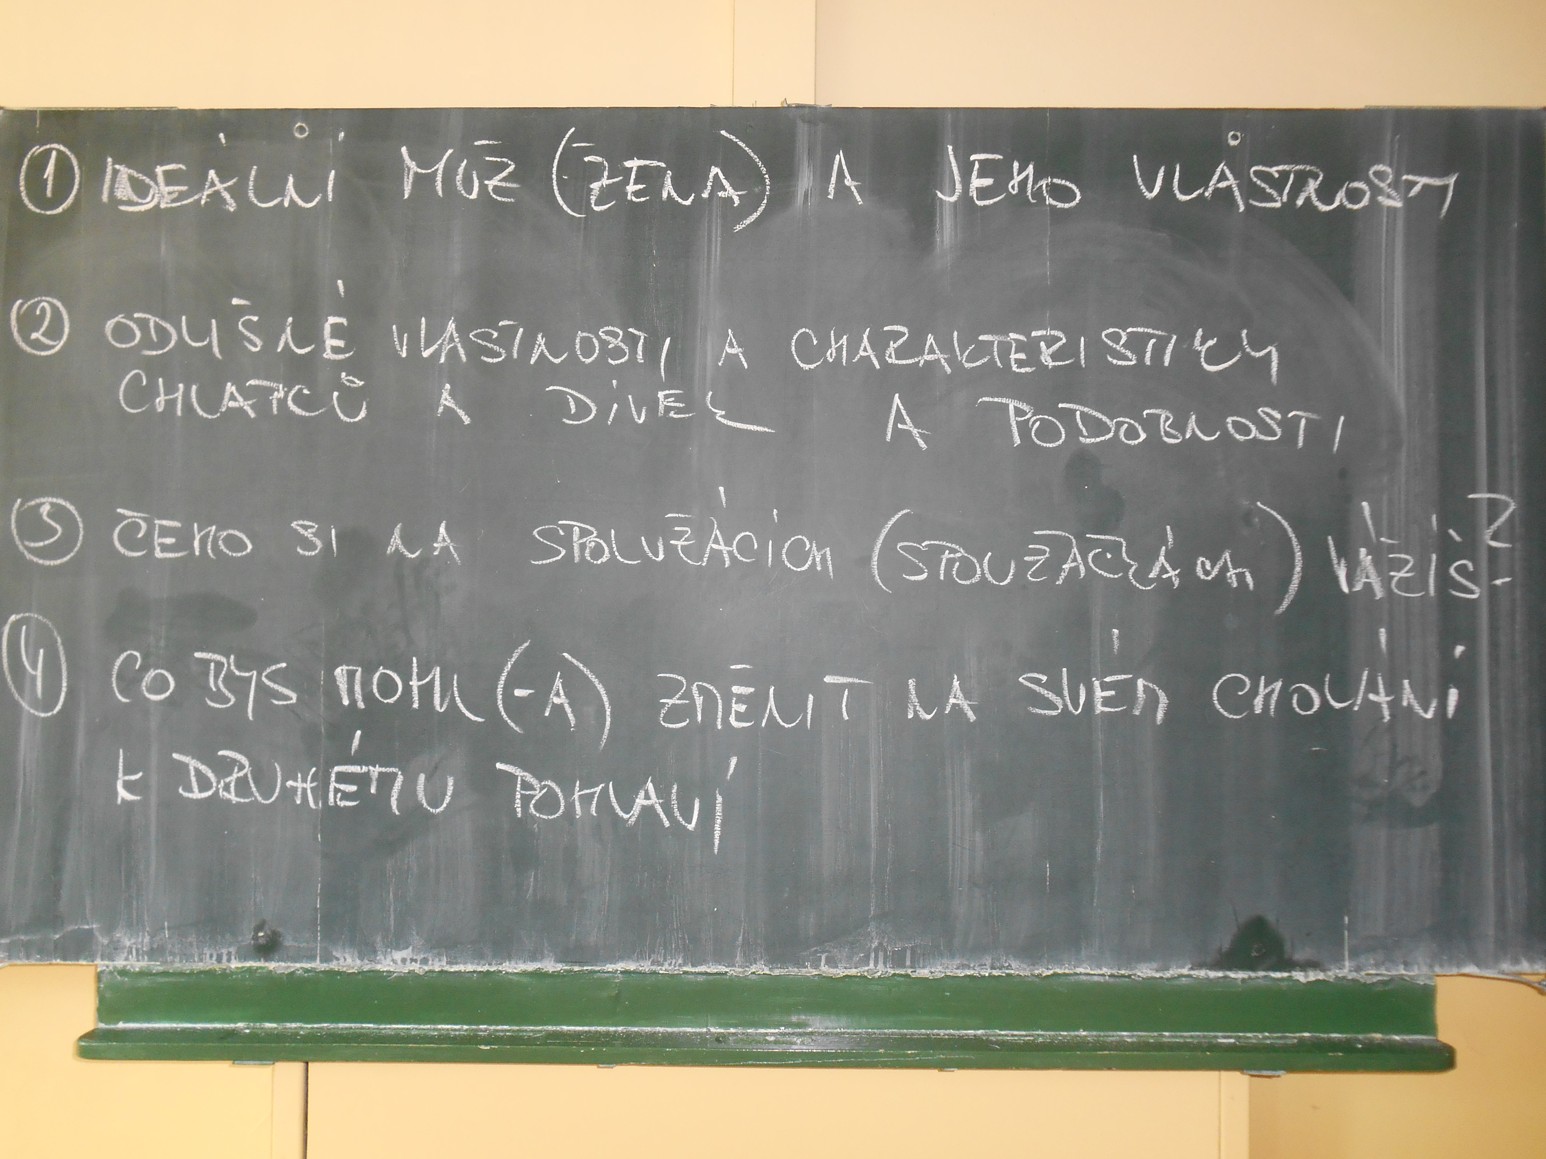 ① IDEÁLNÍ MŮŽ (ŽENA) A JEHO VLASTNOSTI
② ODLIŠNÉ VLASTNOSTI A CHARAKTERISTIKY
CHLAPCŮ A DÍVEK A PODOBNOSTI
③ ČEHO SI NA SPOLUŽÁCÍCH (SPOLUŽAČKÁCH) VÁŽÍŠ?
④ CO BYS MOHL (-A) ZMĚNIT NA SVÉM CHOVÁNÍ
K DRUHÉMU POHLAVÍ